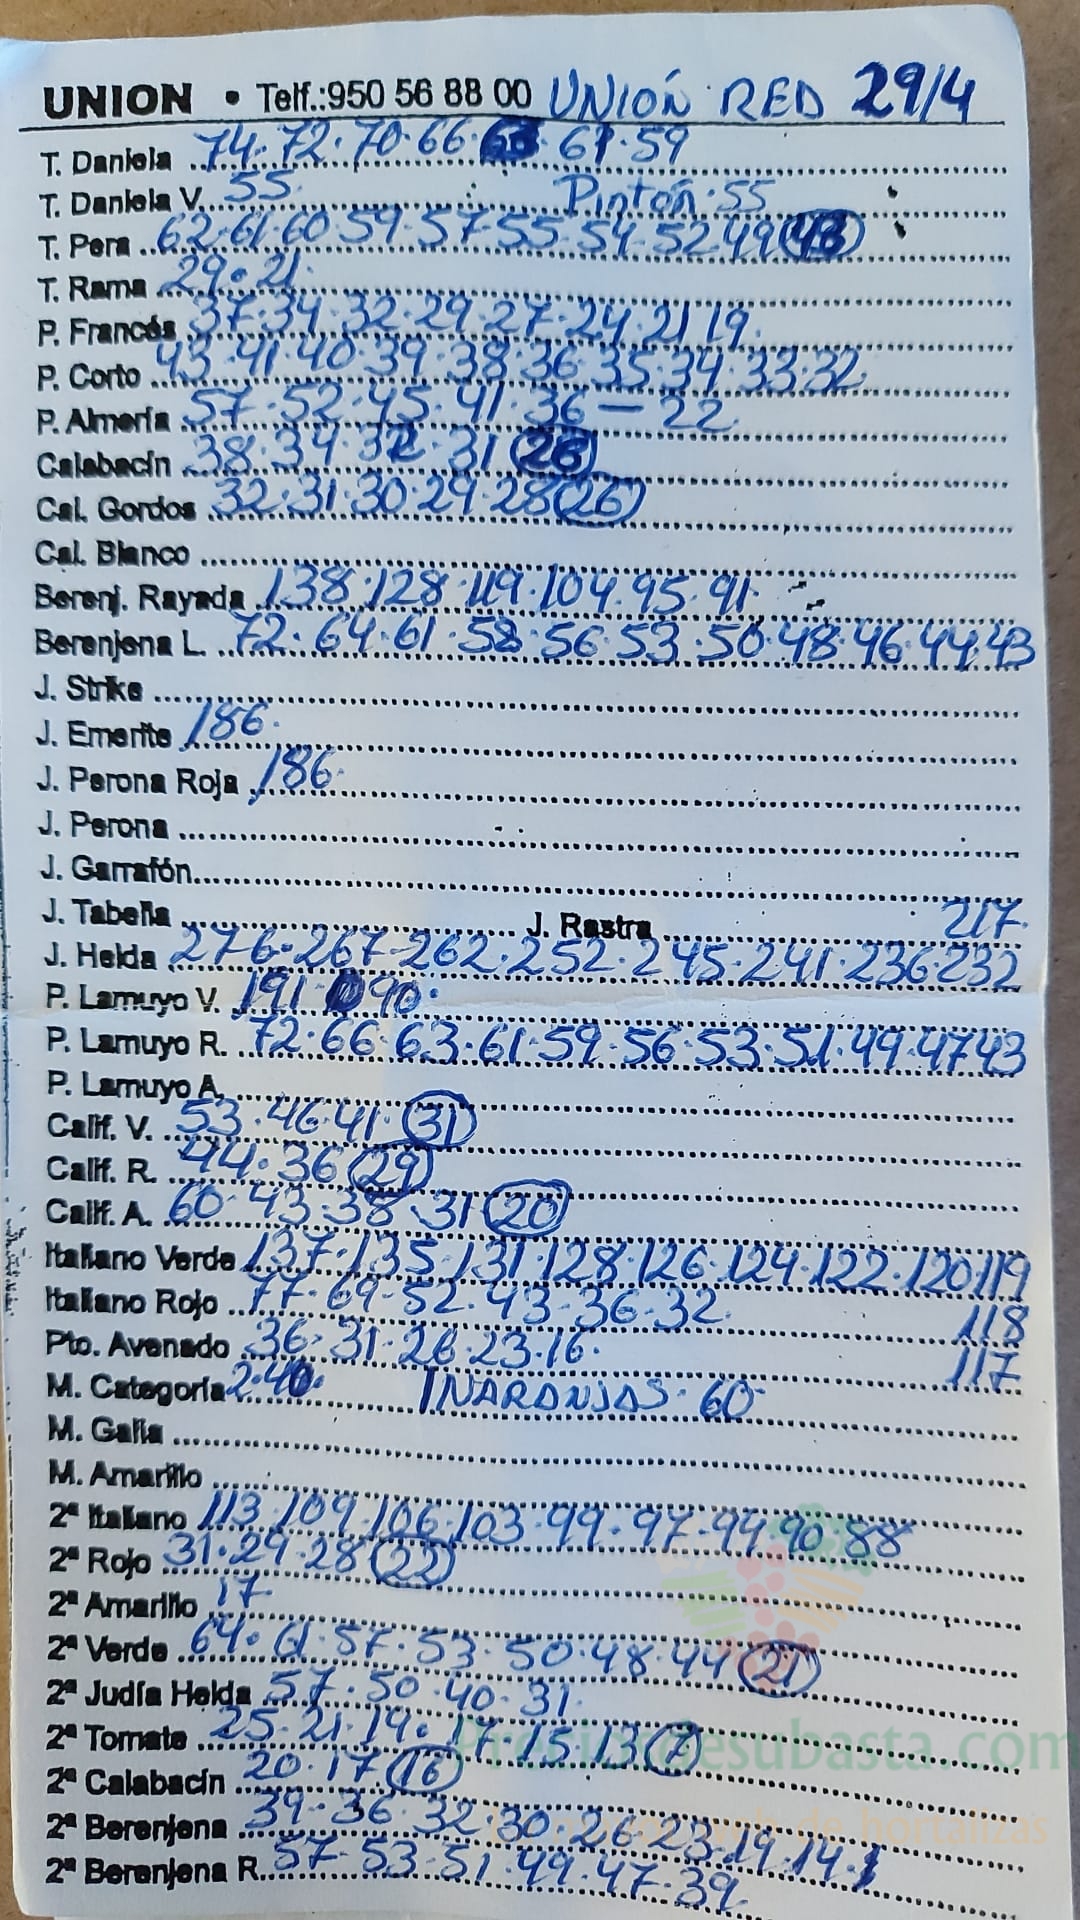 UNION • Telf.:950 56 88 00 UNIÓN RED 29/4
T. Daniela 74·72·70·66· 61·59
T. Daniela V. 55 Pintón·55
T. Pera 62·61·60·59·57·55·54·52·49
T. Rama 29·21
P. Francés 37·34·32·29·27·24·21 19
P. Corto 43·41·40·39·38·36·35·34·33·32
P. Almería 57·52·45·41·36—22
Calabacín 38·34 32·31
Cal. Gordos 32·31·30·29·28(26)
Cal. Blanco
Berenj. Rayada 138·128·119·104·95·91
Berenjena L. 72·64·61·58·56·53·50·48·46·44·43
J. Strike
J. Emerite 186
J. Perona Roja 186
J. Perona
J. Garrafón
J. Tabella J. Rastra 217
J. Helda 276·267·262·252·245·241·236·232
P. Lamuyo V. 191 90
P. Lamuyo R. 72·66·63·61·59·56·53·51·49·47 43
P. Lamuyo A.
Calif. V. 53·46·41·(31)
Calif. R. 44·36(29)
Calif. A. 60·43·38·31(20)
Italiano Verde 137·135·131·128·126·124·122·120·119
Italiano Rojo 77·69·52·43·36·32 118
Pto. Avenado 36·31·26·23·16 117
M. Categoría 2·40 NARANJAS·60
M. Galia
M. Amarillo
2ª Italiano 113·109·106·103·99·97·94 90·88
2ª Rojo 31·29·28(22)
2ª Amarillo 17
2ª Verde 64·61·57·53·50·48·44(21)
2ª Judía Helda 57·50·40·31
2ª Tomate 25·21·19·17·15·13(7)
Preciosdesubasta.com
2ª Calabacín 20·17(16)
2ª Berenjena 39·36·32·30·26·23·19·14
web de hortalizas
2ª Berenjena R. 57·53·51·49·47·39